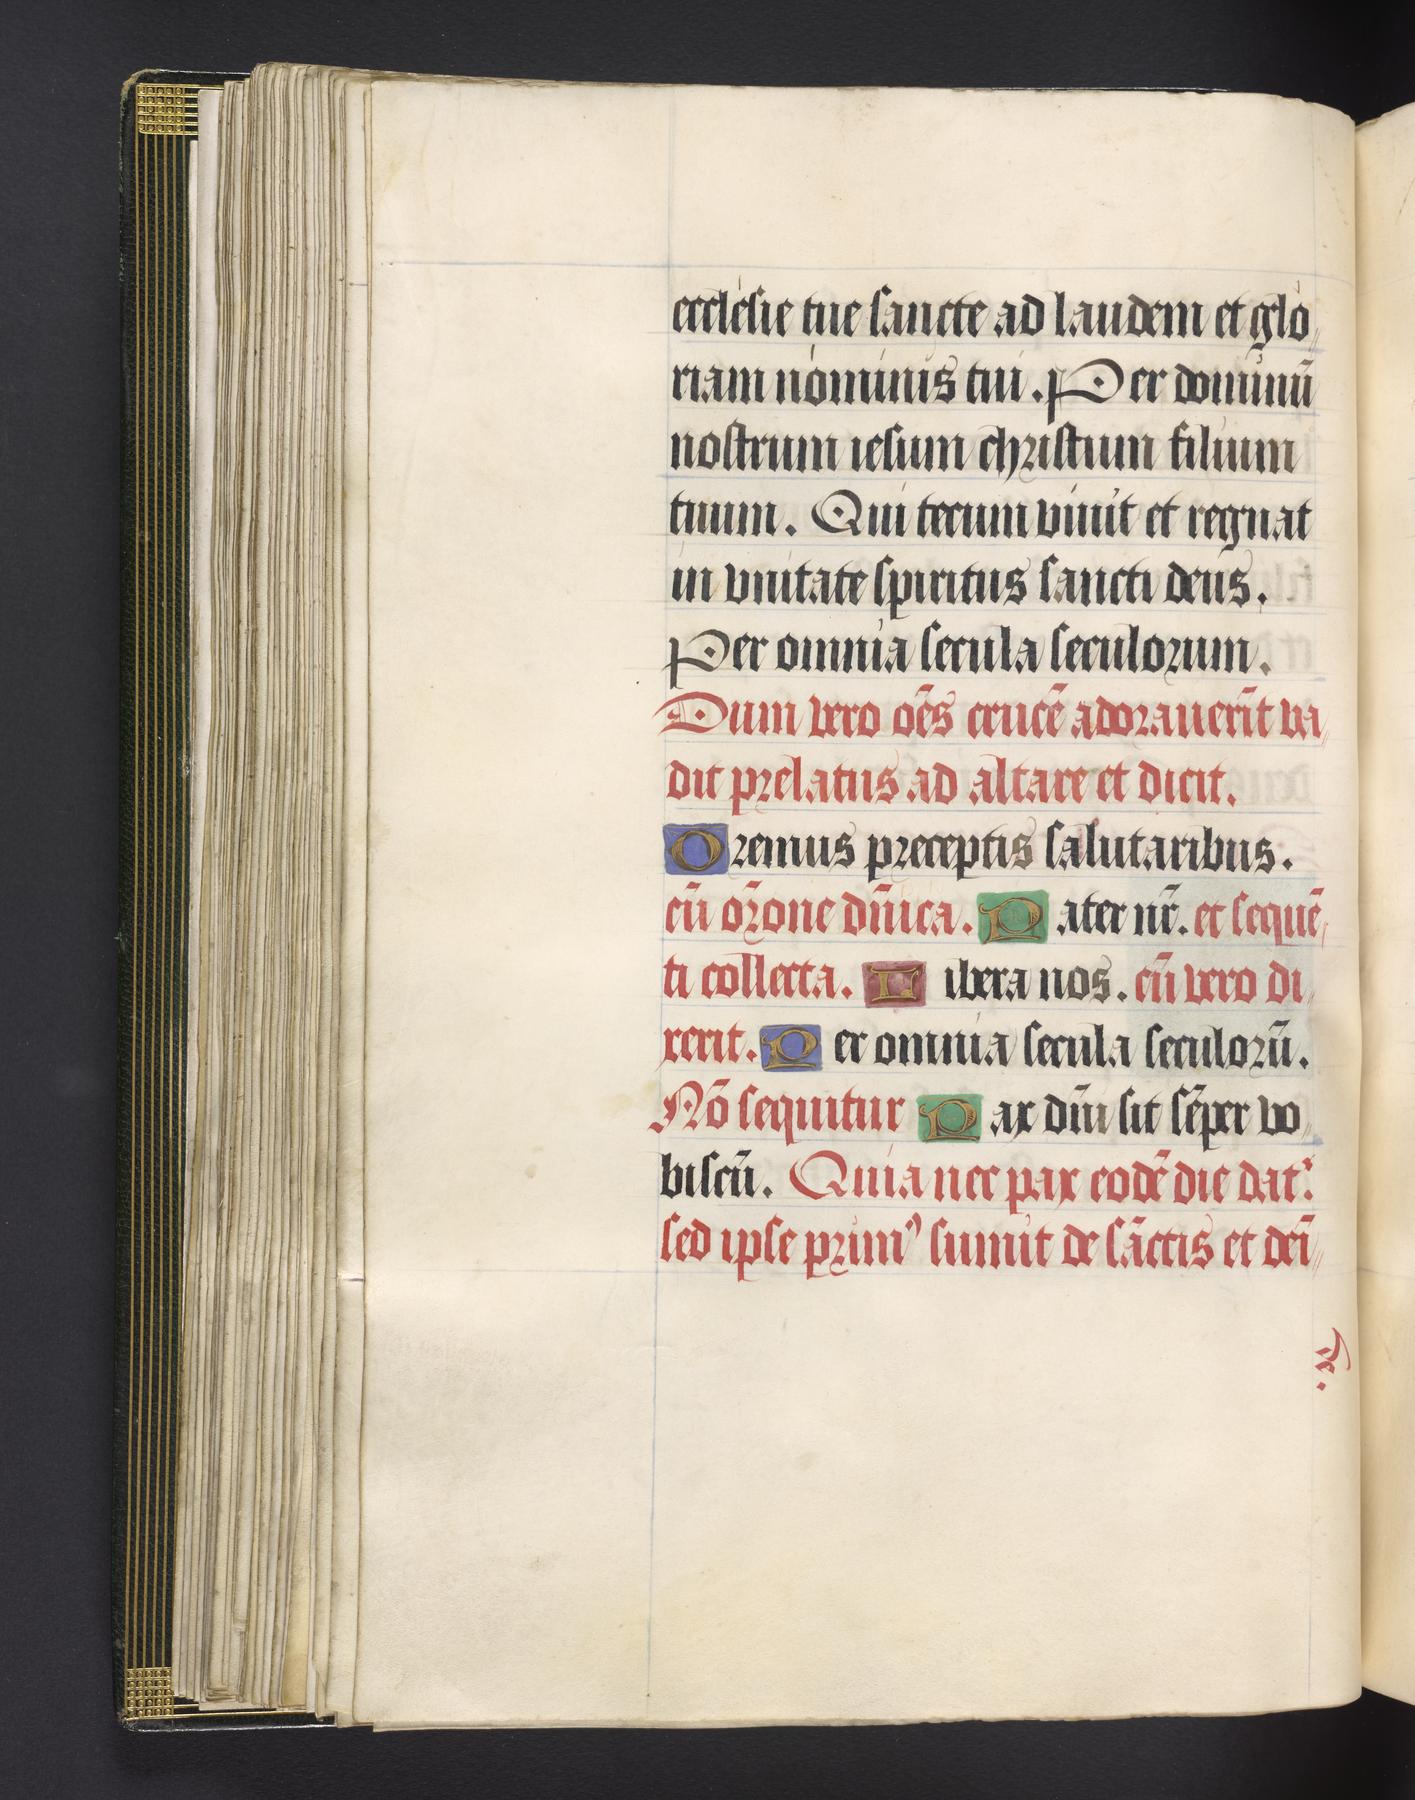 ecclesie tue sancte ad laudem et glo
riam nominis tui. Per dominū
nostrum iesum christum filium
tuum. Qui tecum viuit et regnat
in vnitate spiritus sancti deus.
Per omnia secula seculorum.
Dum vero oēs crucē adorauerīt va
dit prelatus ad altare et dicit.
Oremus preceptis salutaribus.
cū or̄one dn̄ica. Pater nr̄. et sequē
ti collecta. Libera nos. cū vero di
xerit. Per omnia secula seculorū.
Nō sequitur Pax dn̄i sit sēper vo
biscū. Quia nec pax eodē die datᷣ.
sed ipse primꝰ sumit de sāctis et deī